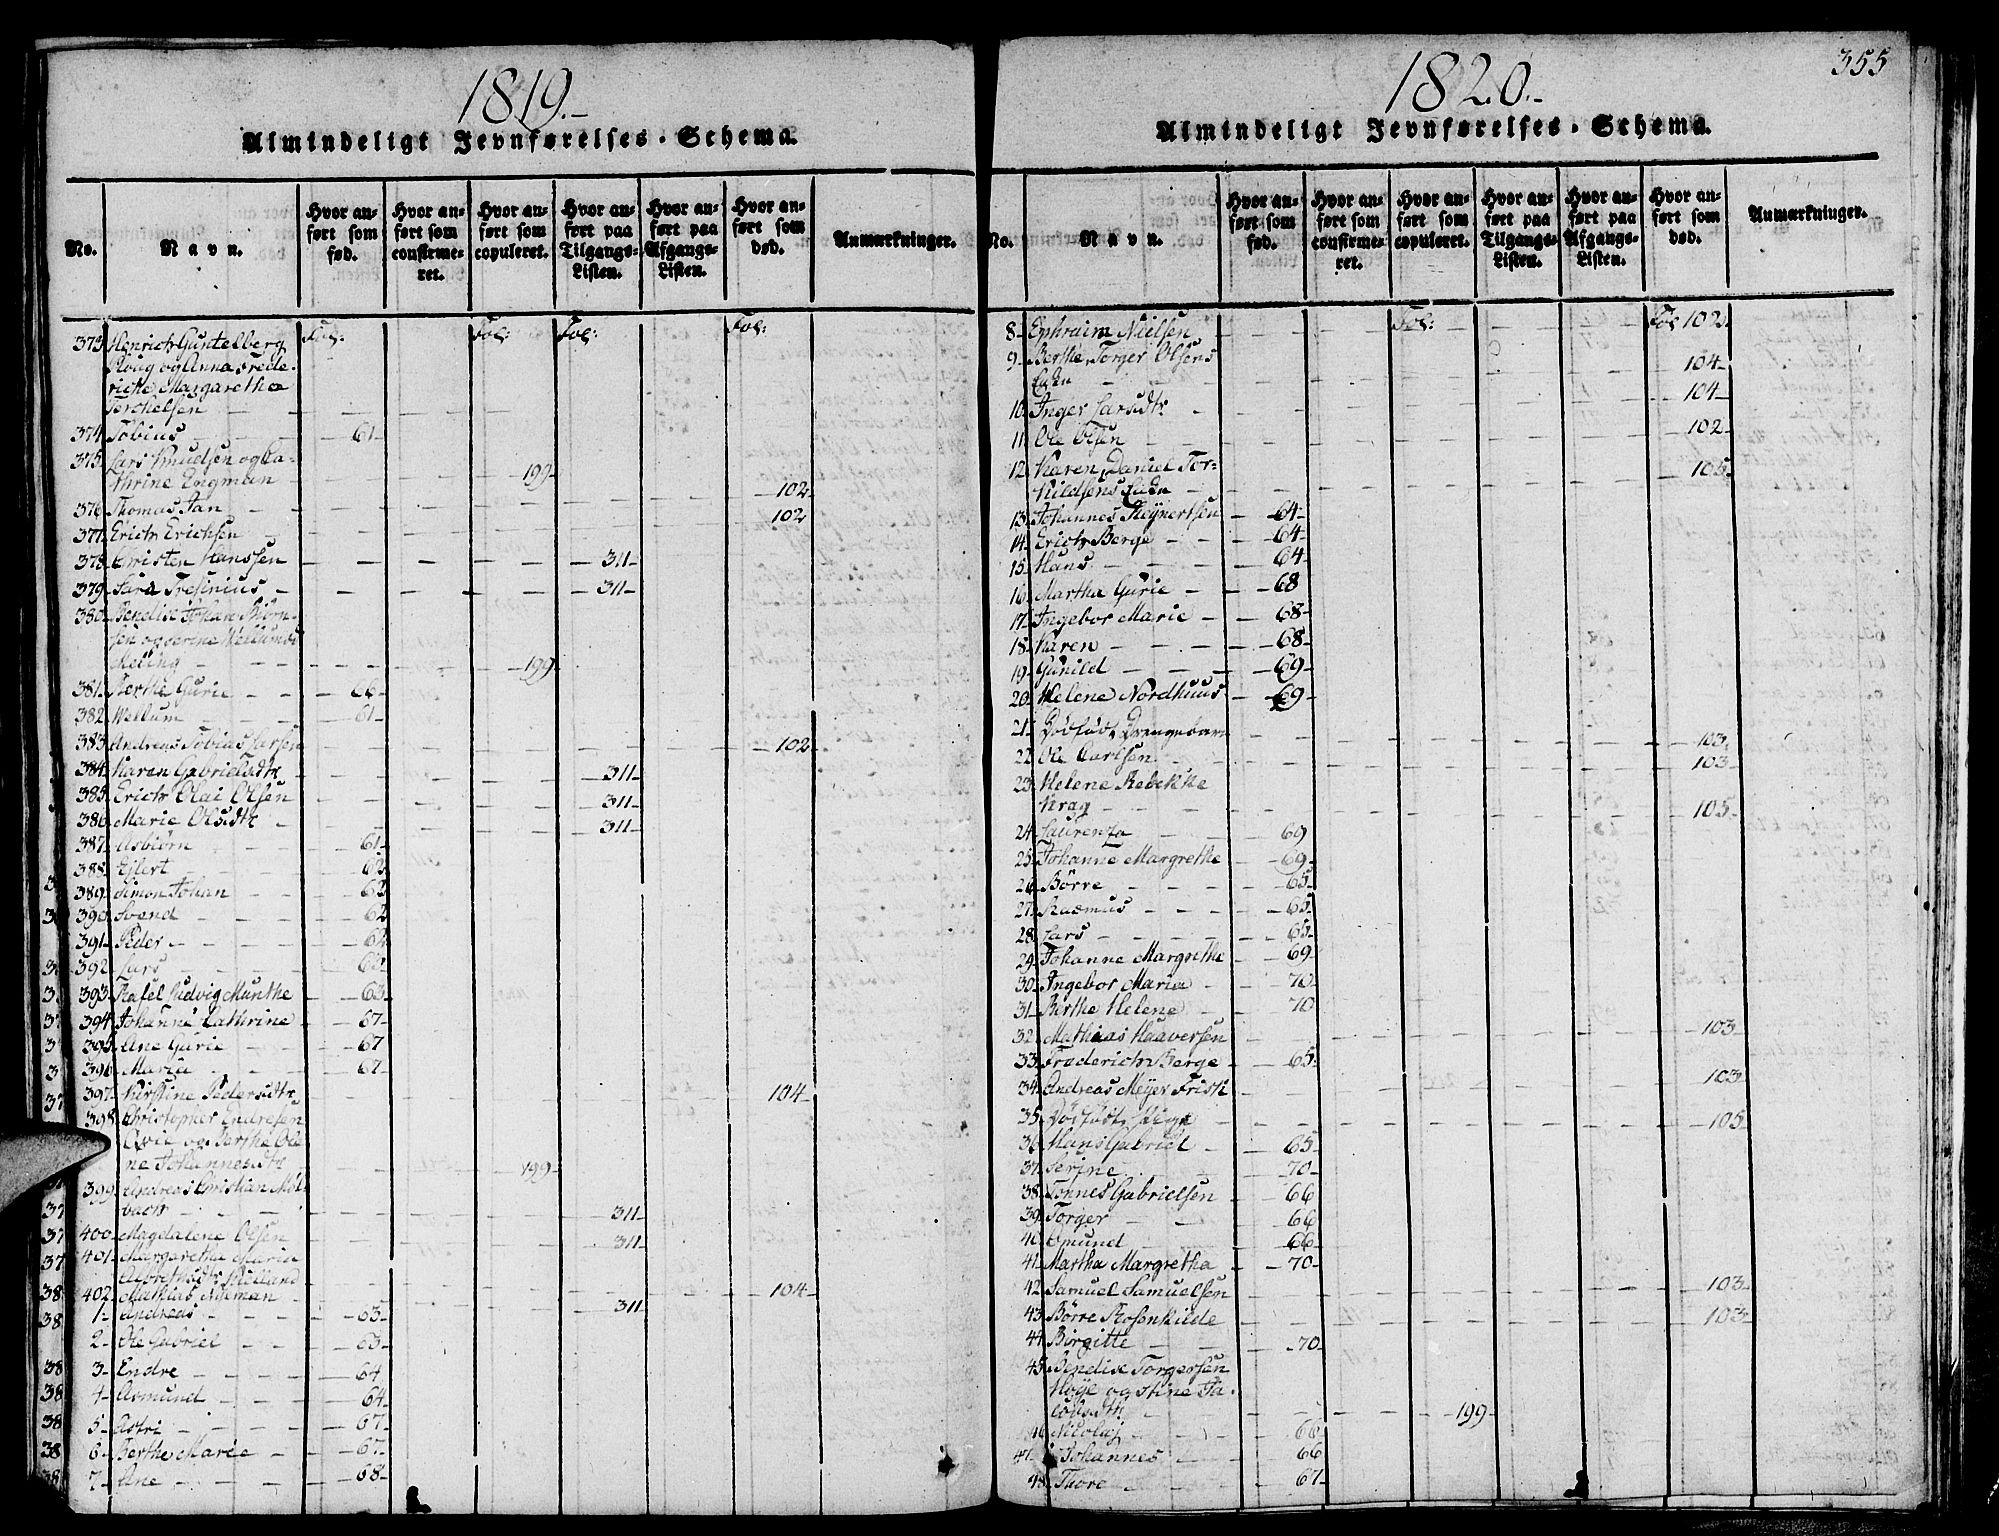 1819.-
Almindeligt Jevnførelses-Schema.
No.
Navn.
Hvor anført som fød.
Hvor anført som confirmeret.
Hvor anført som copuleret.
Hvor anført paa Tilgangs-Listen.
Hvor anført paa Afgangs-Listen.
Hvor anført som død.
Anmærkninger.
Fol: Fol: Fol: Fol:
373 Henrich Gustelberg
Ploug og Anna Frede-
ricke Margaretha
Terchelsen
374 Tobius 61
375 Lars Knudsen og Ca-
thrine Engman 199
376 Thomas Jan 102
377 Erich Erichsen 102
378 Christen Hanssen 311
379 Sara Fresinius 311
380 Bendixe Johan Biörn-
sen og Serine Wellumsd
Meling 199
381 Berthe Gurie 66
382 Wellum 61
383 Andreas Tobias Larsen 102
384 Karen Gabrielsdtr 311
385 Erich Olai Olsen 311
386 Marie Olsdtr 311
387 Asbiörn 61
388 Ejlert 62
389 Simon Johan 62
390 Svend 62
391 Peder 62
392 Lars 63
393 Rafel Ludvig Munthe 63
394 Johanne Cathrine 67
395 Ane Gurie 67
396 Maria 67
397 Kirstine Pedersdtr 104
398 Christopher Endresen
Qvie og Berthe Ole
ne Johannesdtr 199
399 Andreas Christian Möl
bach 311
400 Magdalene Olsen 311
401 Margaretha Maria
Albrethsdtr Kielland 311
402 Mathias Nyeman 104
1 Andreas 63
2 Ole Gabriel 63
3 Endre 64
4 Asmund 64
5 Astri 67
6 Berthe Marie 67
7 Ane 68
355
1820.-
Almindeligt Jevnførelses-Schema.
No.
Navn.
Hvor anført som fød.
Hvor anført som confirmeret.
Hvor anført som copuleret.
Hvor anført paa Tilgangs-Listen.
Hvor anført paa Afgangs-Listen.
Hvor anført som død.
Anmærkninger.
8 Ephraim Nielsen Fol: Fol 102
9 Berthe, Torger Olsens
Enke 104
10 Inger Larsdtr 104
11 Ole Olsen 102
12 Karen, Daniel Tor-
kildsens Enke 105
13 Johannes Meynertsen 64
14 Erich Berge 64
15 Hans 64
16 Martha Gurie 68
17 Ingebor Marie 68
18 Karen 68
19 Gunild 69
20 Helene Nordhuus 69
21 Dödfödt Drengebarn 103
22 Ole Carlsen 103
23 Helene Rebekke
Krag 105
24 Laurenza 69
25 Johanne Margrethe 69
26 Börre 65
27 Rasmus 65
28 Lars 65
29 Johanne Margrethe 69
30 Ingebor Maria 70
31 Berthe Helene 70
32 Mathias Haaversen 103
33 Frederich Berge 65
34 Andreas Meyer Frisk 103
35 Dödfödt Pige 105
36 Hans Gabriel 65
37 Serine 70
38 Tönnes Gabrielsen 66
39 Torger 66
40 Omund 66
41 Martha Margretha 70
42 Samuel Samuelsen 103
43 Börre Rosenkilde 103
44 Birgitte 70
45 Bendixe Torgersen
Höye og Stine Ja-
cobsdtr 199
46 Nicolaj 66
47 Johannes 66
48 Thore 67